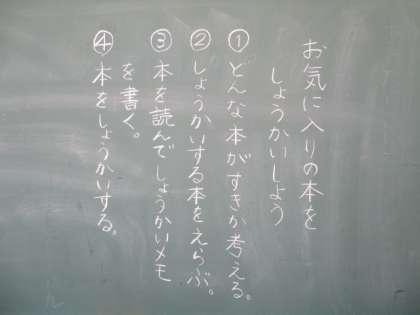 お気に入りの本を
しょうかいしよう
①どんな本がすきか考える。
②しょうかいする本をえらぶ。
③本を読んでしょうかいメモ
を書く。
④本をしょうかいする。